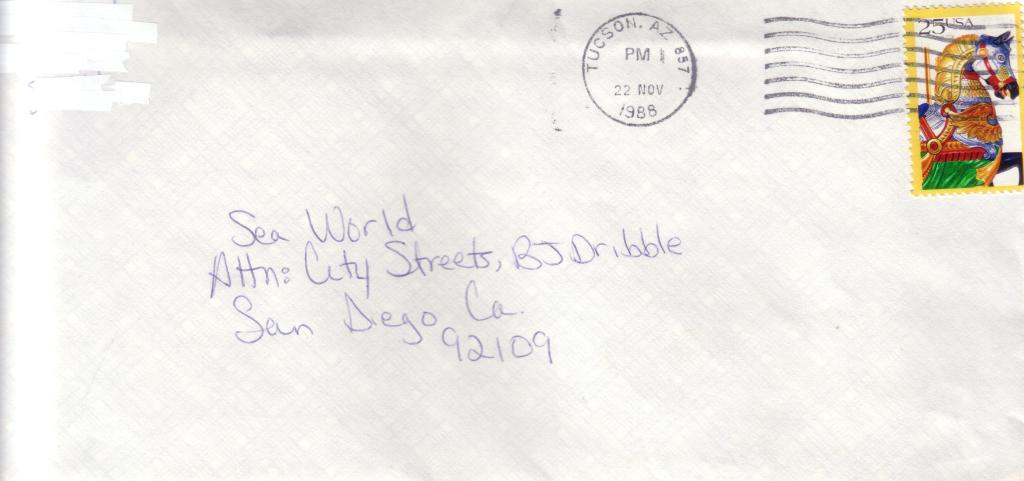 TUCSON, AZ 857
PM
22 NOV
1988
25 USA
Sea World
Attn: City Streets, BJ Dribble
San Diego Ca.
92109